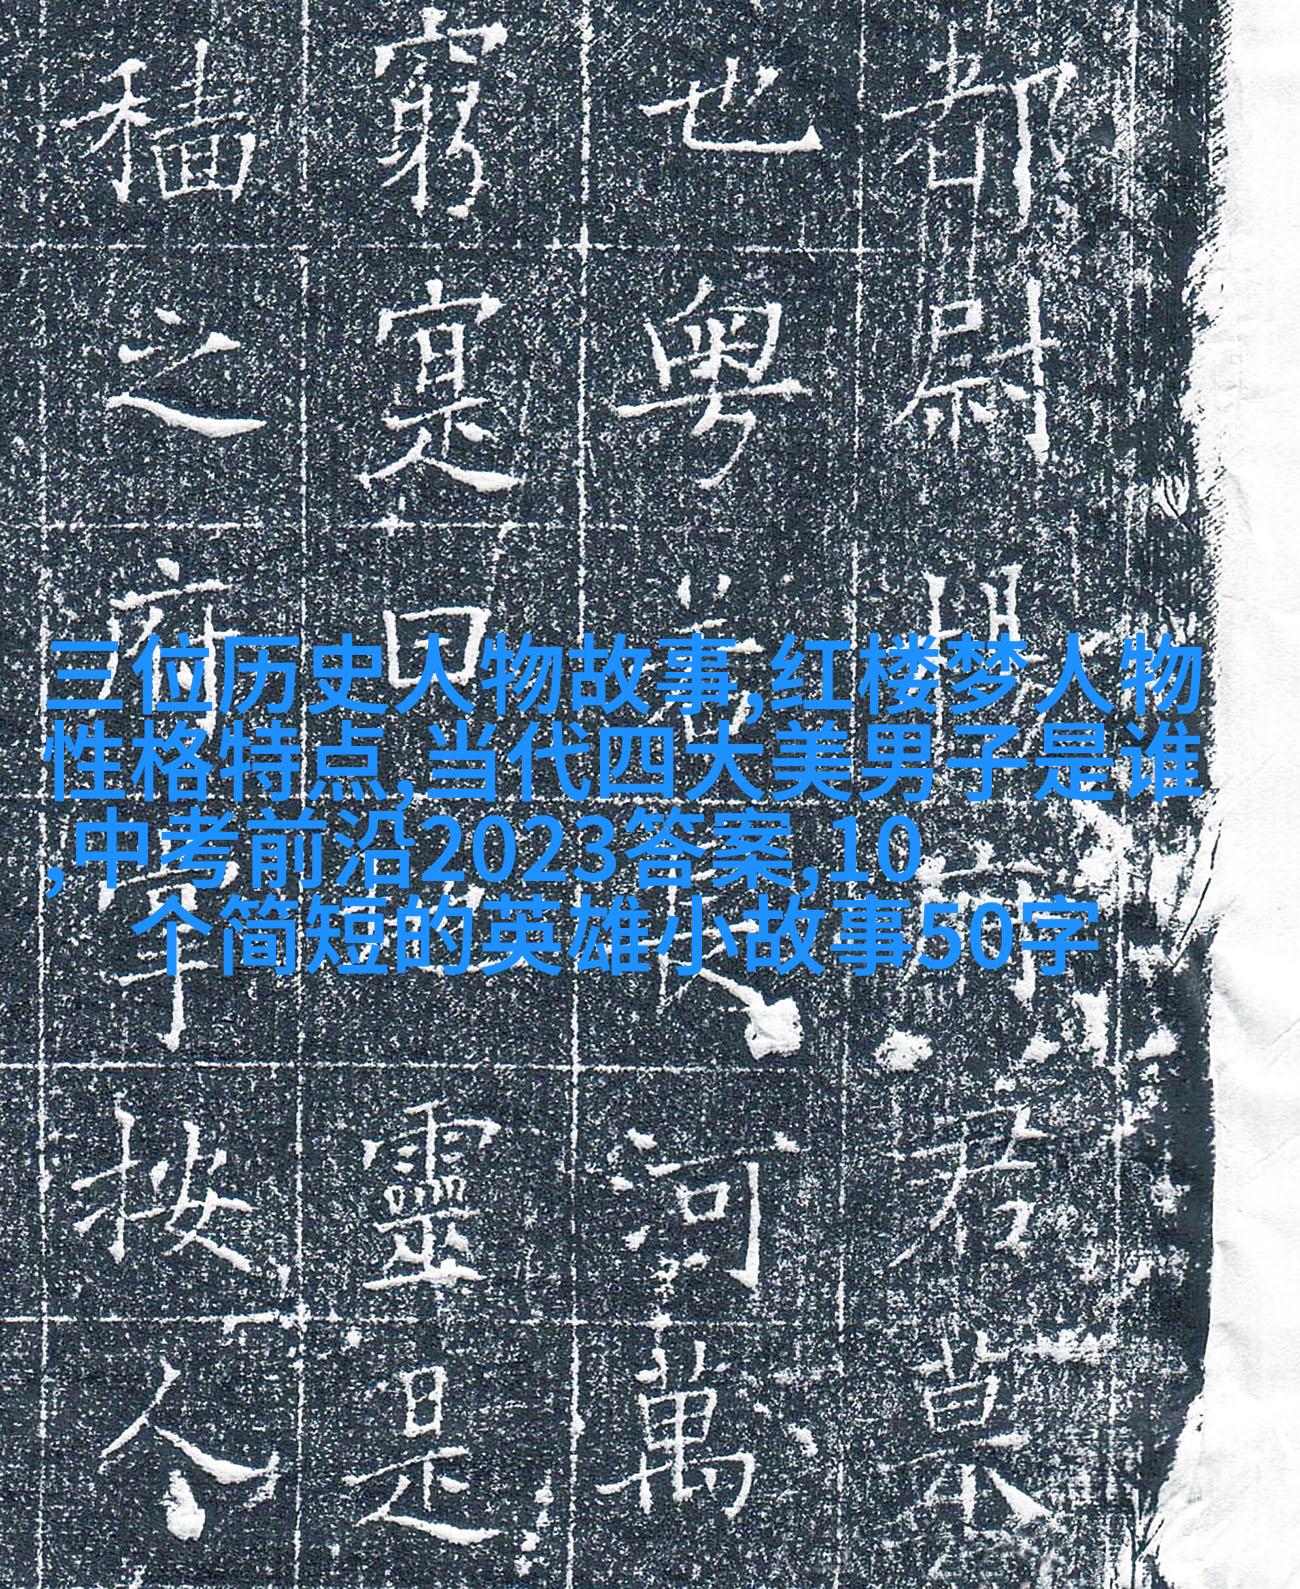 三位历史人物故事,红楼梦人物
性格特点,当代四大美男子是谁
,中考前沿2023答案,10
个简短的英雄小故事50字
都尉
也粵河萬
窮寔曰靈是
穡之府按人